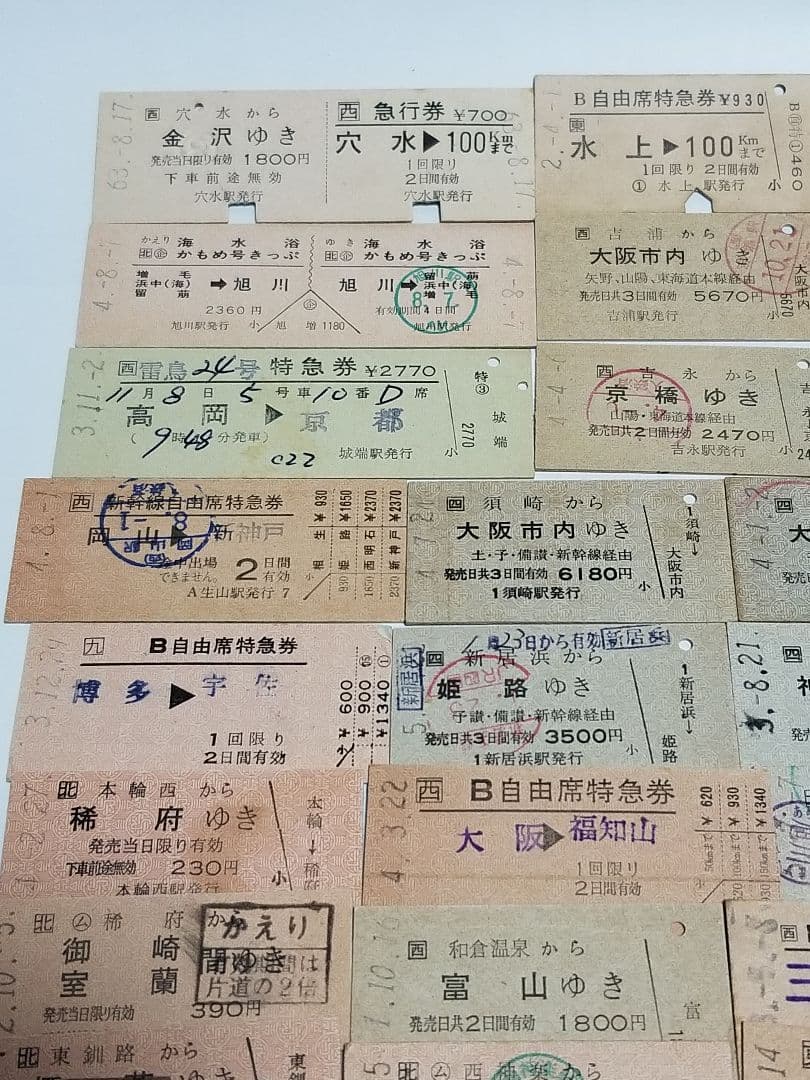 63.-8.17.
西 穴水から
金沢ゆき
発売当日限り有効 1800円
下車前途無効
穴水駅発行
西 急行券 ¥700
穴水▶100Kmまで
1回限り
2日間有効
穴水駅発行
2.-4.-1
B自由席特急券 ¥930
東
水上▶100Kmまで
1回限り 2日間有効
① 水上駅発行 小
4.-8.-7
かえり 海水浴
北 企 かもめ号きっぷ
増毛
浜中(海)
留萌
➡旭川
2360円
旭川駅発行 小 旭 増1180
ゆき 海水浴
北 企 かもめ号きっぷ
旭川➡
留萌
浜中(海)
増毛
有効期間4日間
旭川駅発行
旭川駅
8.-7
西 吉浦から
大阪市内ゆき
矢野、山陽、東海道本線経由
発売日共3日間有効 5670円
吉浦駅発行 小
10.21
大阪市内
5670
3.11.-2
西 雷鳥24号 特急券 ¥2770
11月8日5号車10番D席
高岡▶京都
(9時48分発車)
C22 城端駅発行 小
特③
城端
2770
西 吉永から
京橋ゆき
山陽・東海道本線経由
発売日共2日間有効 2470円
吉永駅発行 小
4.-8.-1
西 新幹線自由席特急券
岡山▶新神戸
途中出場できません。
2日間有効
A生山駅発行 7
相生 ¥930
姫路 ¥1650
西明石 ¥2370
新神戸 ¥2370
四 須崎から
大阪市内ゆき
土・予・備讃・新幹線経由
発売日共3日間有効 6180円
1須崎駅発行 小
1須崎→大阪市内
4.-1.-2
九 B自由席特急券
博多▶宇佐
1回限り
2日間有効
¥600
¥900
¥1340
1月23日から有効 新居浜
新居浜
四 新居浜から
姫路ゆき
予讃・備讃・新幹線経由
発売日共3日間有効 3500円
1新居浜駅発行 小
1新居浜→姫路
3.-8.21.
北 本輪西から
稀府ゆき
発売当日限り有効
下車前途無効 230円
本輪西駅発行 小
本輪→稀府
4.3.22
西 B自由席特急券
大阪▶福知山
1回限り
2日間有効
50kmまで ¥620
100kmまで ¥930
150kmまで ¥1340
北 ム 稀府から
御崎
室蘭 間ゆき
発売当日限り有効 390円
かえり
有効期間は
片道の2倍
1.10.16
西 和倉温泉から
富山ゆき
発売日共2日間有効 1800円
富
北 東釧路から
東釧
北 ム 西神楽から